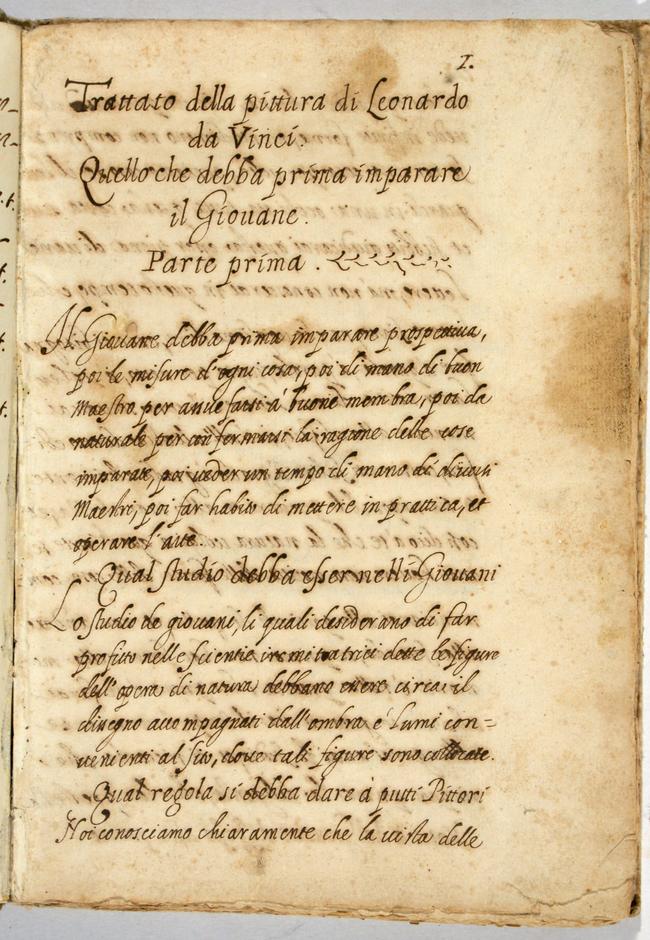 1.
Trattato della pittura di Leonardo
da Vinci.
Quello che debba prima imparare
il Giouane.
Parte prima.
Il Giouane debba prima imparare prospettiua,
poi le misure d'ogni cosa, poi di mano di buon
Maestro per assuefarsi à buone membra, poi da
naturale per confermarsi la ragione delle cose
imparate, poi ueder un tempo di mano di diuersi
Maestri, poi far habito di mettere in prattica, et
operare l'arte.
Qual studio debba esser nelli Giouani
Lo studio de giouani, li quali desiderano di far
profitto nelle scientie imitatrici dette le figure
dell'opera di natura debbano essere circa il
disegno accompagnati dall'ombra e lumi con=
uenienti al sito, doue tali figure sono collocate.
Qual regola si debba dare à putti Pittori
Noi conosciamo chiaramente che la uista delle